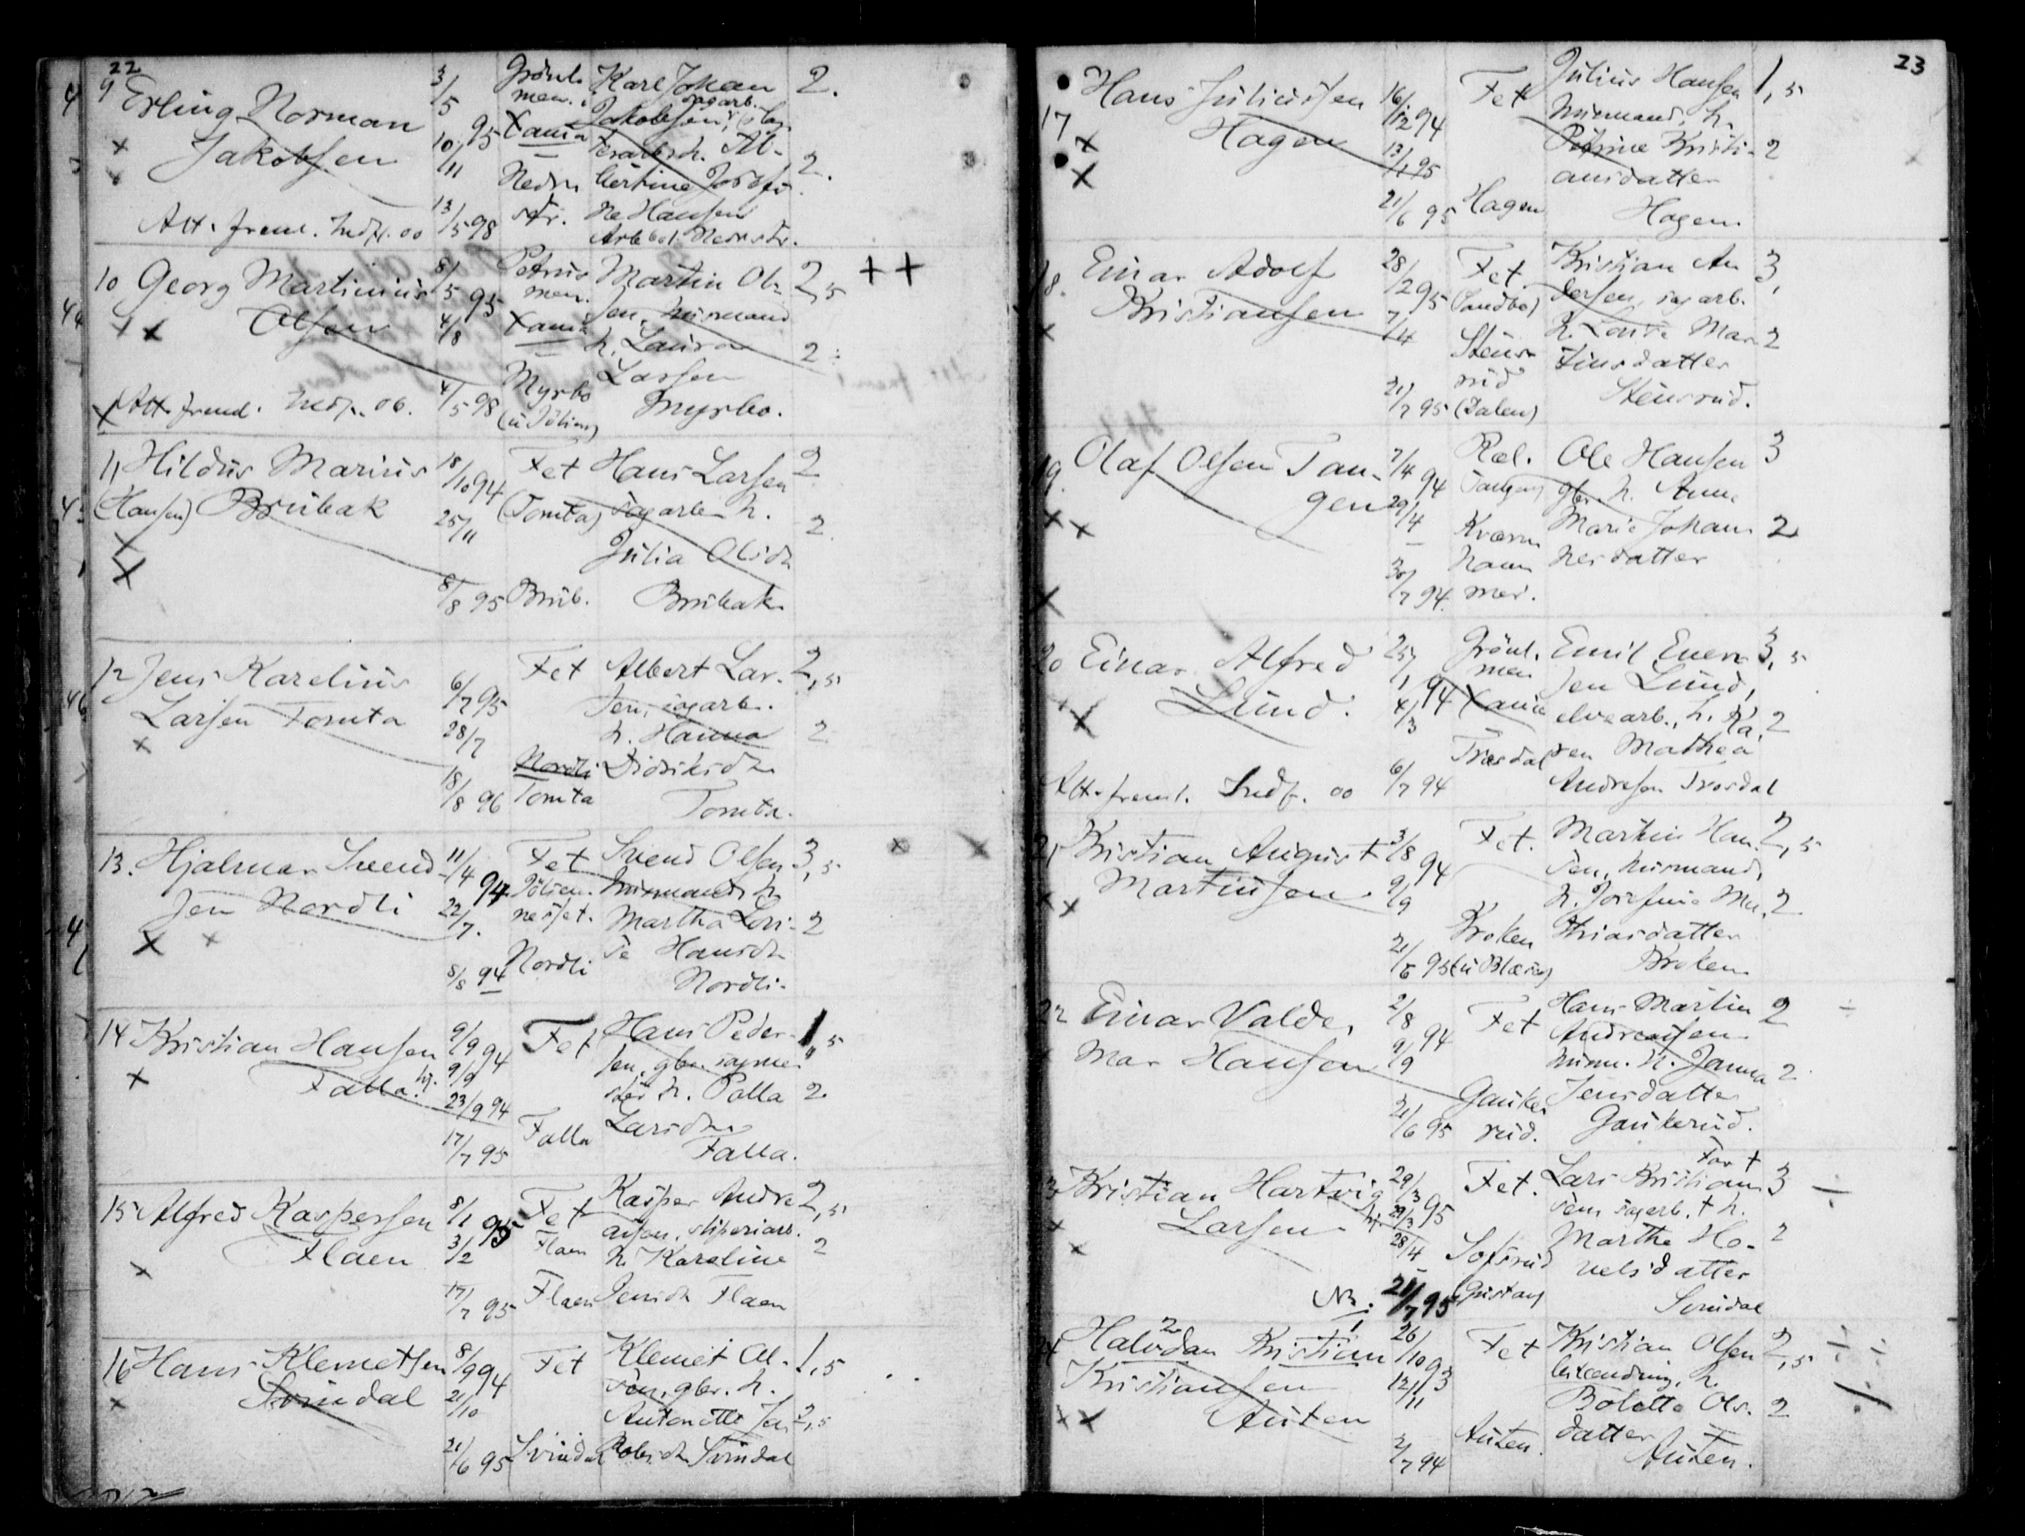 22
9 Erling Norman
Jakobsen
3/5 95
10/11
13/5 98
Grønl.
men.
Xania
Nedre
str.
Karl Johan
Jakobsen, sagarb.
h. Al-
bertine Josefi-
ne Hansen
Arbbol. Nedrestr.
2.
2.
Att. freml. Indf. 00
10 Georg Martinius
Olsen
8/5 95
4/8
4/5 98
Petrus
men.
Xania
Myrbo
(u Jölsen)
Martin Ol-
sen, husmand
h. Laura
Larsen
Myrbo.
2,5
2
++
Att. freml. Indf. 00.
11 Hildus Marius
(Hansen) Brubak
18/10 94
25/11
8/8 95
Fet
(Tomta)
Brub.
Hans Larsen
sagarb. h.
Julia Olsdr
Brubak
2
2
12 Jens Karelius
Larsen Tomta
6/7 95
28/7
18/8 96
Fet
Nordli
Tomta
Albert Lar-
sen, sagarb.
h. Hanna
Didriksdr
Tomta.
2,5
2
13. Hjalmar Svend-
sen Nordli
11/4 94
22/7.
8/8 94
Fet
Jölsen-
neset.
Nordli
Svend Olsen
husmand h.
Martha Lovi-
se Hansdr
Nordli.
3,5
2
14 Kristian Hansen
Falla.
hj.
9/9 94
9/9
23/9 94
17/7 95
Fet
Falla
Hans Peder-
sen, gbr. sagme-
ster h. Palla
Larsdr
Falla.
1,5
2.
15 Alfred Kaspersen
Flaen
8/1 95
3/2
17/7 95
Fet
Flaen
Flaen
Kasper Andre-
asen, sliperiarb.
h. Karoline
Jensdr Flaen
2,5
2
16 Hans Klemetsen
Svindal
8/9 94
21/10
21/6 95
Fet
Svindal
Klemet Ol-
sen, gbr. h.
Antonette Ja-
kobsdr Svindal
1,5
2,5
23
17
Hans Juliussen
Hagen
16/12 94
13/1 95
21/6 95
Fet
Hagen
Julius Hansen
husmand, h.
Petrine Kristi-
ansdatter
Hagen
1,5
2
18. Einar Adolf
Kristiansen
28/2 95
7/4
21/7 95
Fet
(Sandbo)
Stens-
rud
(Dalen)
Kristian An-
dersen, sagarb.
h. Lovise Mar-
tinsdatter
Stensrud.
3,
2
19. Olaf Olsen Tan-
gen
7/4 94
29/4
30/7 94.
Ræl.
Tangen
Kværn
ham-
mer.
Ole Hansen
gbr. h. Anne
Marie Johan-
nesdatter
3
2
20 Einar Alfred
Lund.
25/1 94
4/3
6/7 94
Grönl.
men
Xania
Trosdal
Emil Even-
sen Lund,
elvearb., h. Ka-
ren Mathea
Andresen Trosdal
3,5
2
Att. freml. Indf. 00
21 Kristian August
Martinsen
3/8 94
9/9
21/6 95
Fet.
Kroken
(u Blæsing)
Martin Han-
sen, husmand,
h. Josefine Ma-
thiasdatter
Kroken
2,5
2
22 Einar Valde-
mar Hansen
2/8 94
9/9
21/6 95
Fet
Gauke-
rud.
Hans Martin
Andreassen
husm. h. Janna
Jensdatter
Gaukerud.
2
2
÷
23 Kristian Hartvig
Larsen
29/3 95
hj. 29/3
28/4
21/7 95
Fet.
Sofsrud
(Gustav)
Far †
Lars Kristian-
sen, sagarb. † h.
Marthe Ho-
velsdatter
Svindal
3
2
÷
Nb:
24 Halvdan Kristian
Kristiansen
Auten
26/10 93
12/11
2/7 94
Fet
Auten.
Kristian Olsen
h.
Bolette Ols-
datter
Auten.
2,5
2
÷ ÷